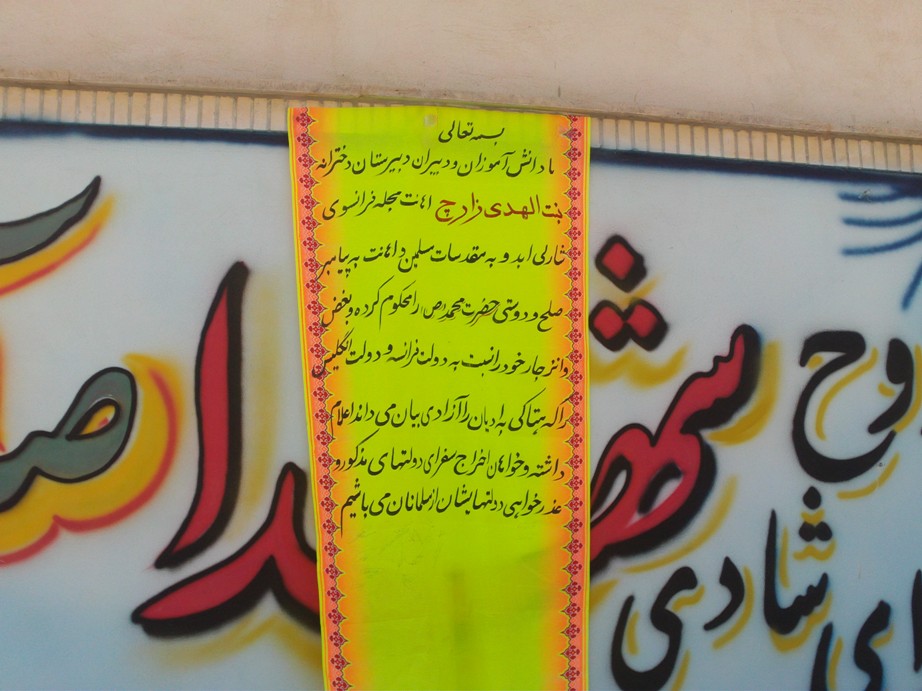 بسمه تعالی
ما دانش آموزان و دبیران دبیرستان دخترانه
بنت الهدی زارچ اهانت مجله فرانسوی
شارلی ابدو به مقدسات مسلمین و اهانت به پیامبر
صلح و دوستی حضرت محمد(ص) را محکوم کرده و بغض
وانزجار خود را نسبت به دولت فرانسه و دولت انگلیس
را که هتاکی به ادیان را آزادی بیان می داند اعلام
داشته و خواهان اخراج سفرای دولتهای مذکور و
عذرخواهی دولتهایشان از مسلمانان می باشیم
روح
شهدا
شادی